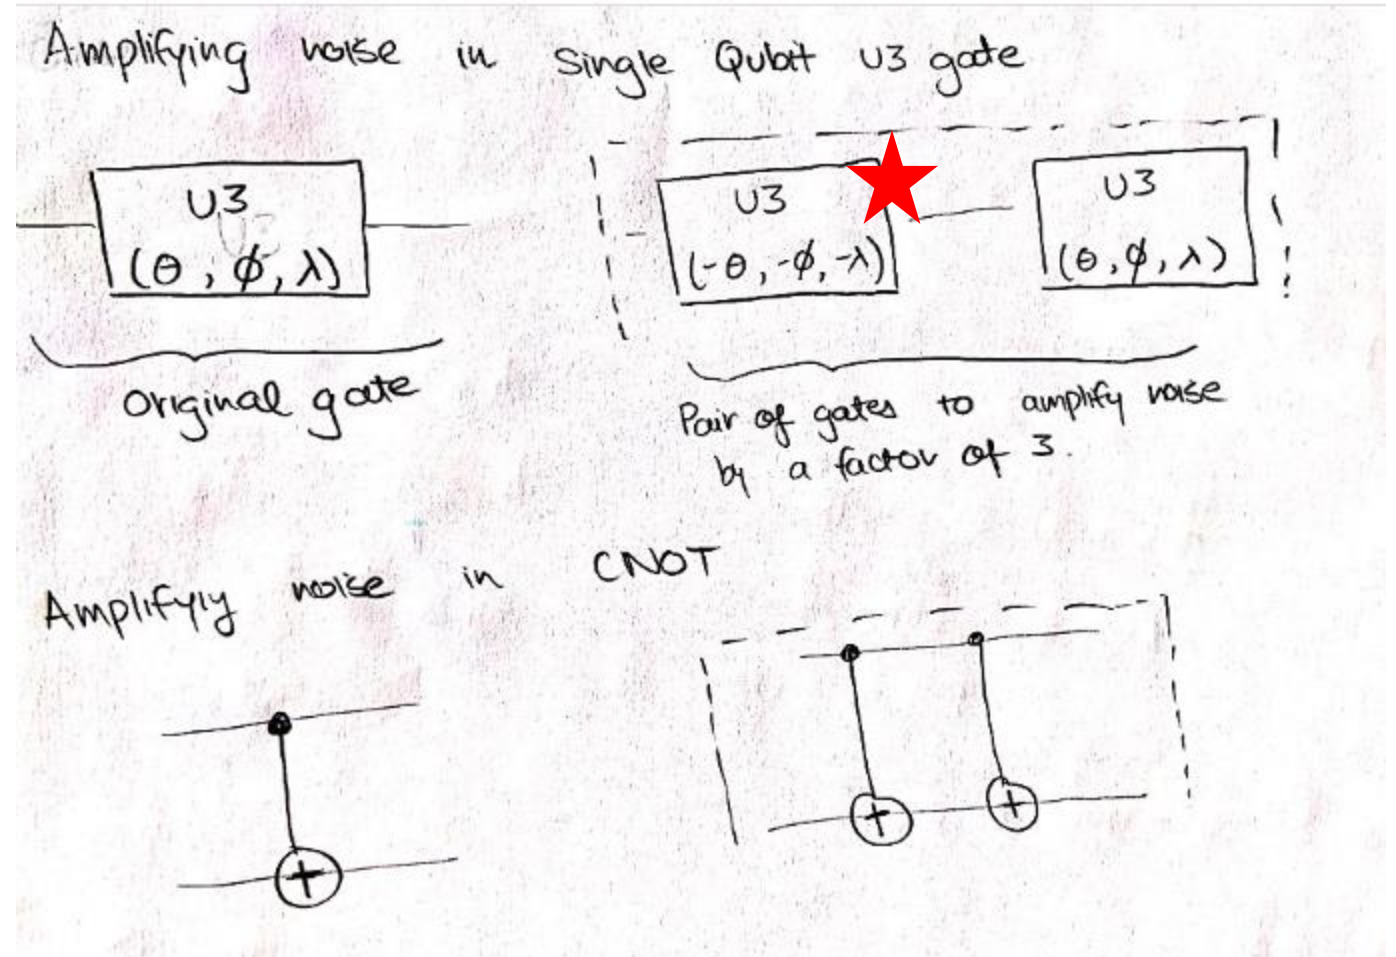 Amplifying noise in Single Qubit U3 gate
U3
(θ, ϕ, λ)
U3
(-θ, -ϕ, -λ)
U3
(θ, ϕ, λ)
Original gate
Pair of gates to amplify noise
by a factor of 3.
Amplifyiy noise in CNOT